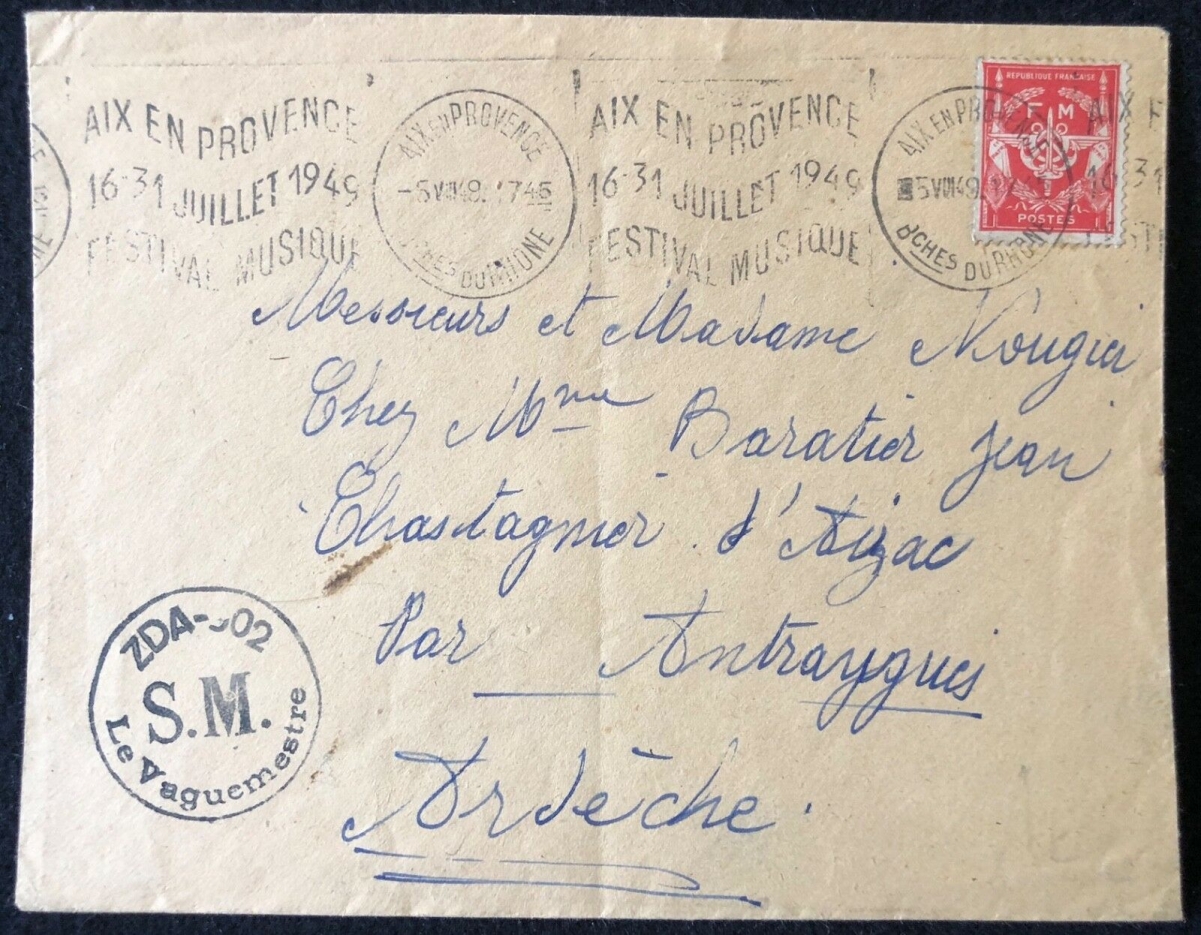 AIX EN PROVENCE
16-31 JUILLET 1949
FESTIVAL MUSIQUE
AIX EN PROVENCE
-5 VIII 49. 1745
BCHES DU RHONE
AIX EN PROVENCE
16-31 JUILLET 1949
FESTIVAL MUSIQUE
AIX EN PROVENCE
5 VIII 49.
BCHES DU RHONE
REPUBLIQUE FRANÇAISE
F M
POSTES
Messieurs et Madame Nougier
Chez Mme Baratier Jean
Chastagnier d'Aizac
Par Antraygues
Ardèche.
ZDA-
S.M.
Le Vaguemestre